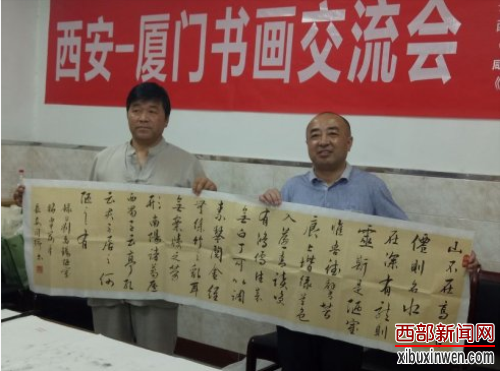 西安一厦门书画交流会
山不在高
僊則名水
在深有龍則
靈斯是陋室
惟吾德馨苔
痕上階綠草色
入簾青談笑
有鴻儒往來
無白丁可以調
素琴閱金經
無絲竹之亂耳
無案牘之勞
形南陽諸葛廬
西蜀子云亭孔
何
陋之有
西部新闻网
xibuxinwen.com